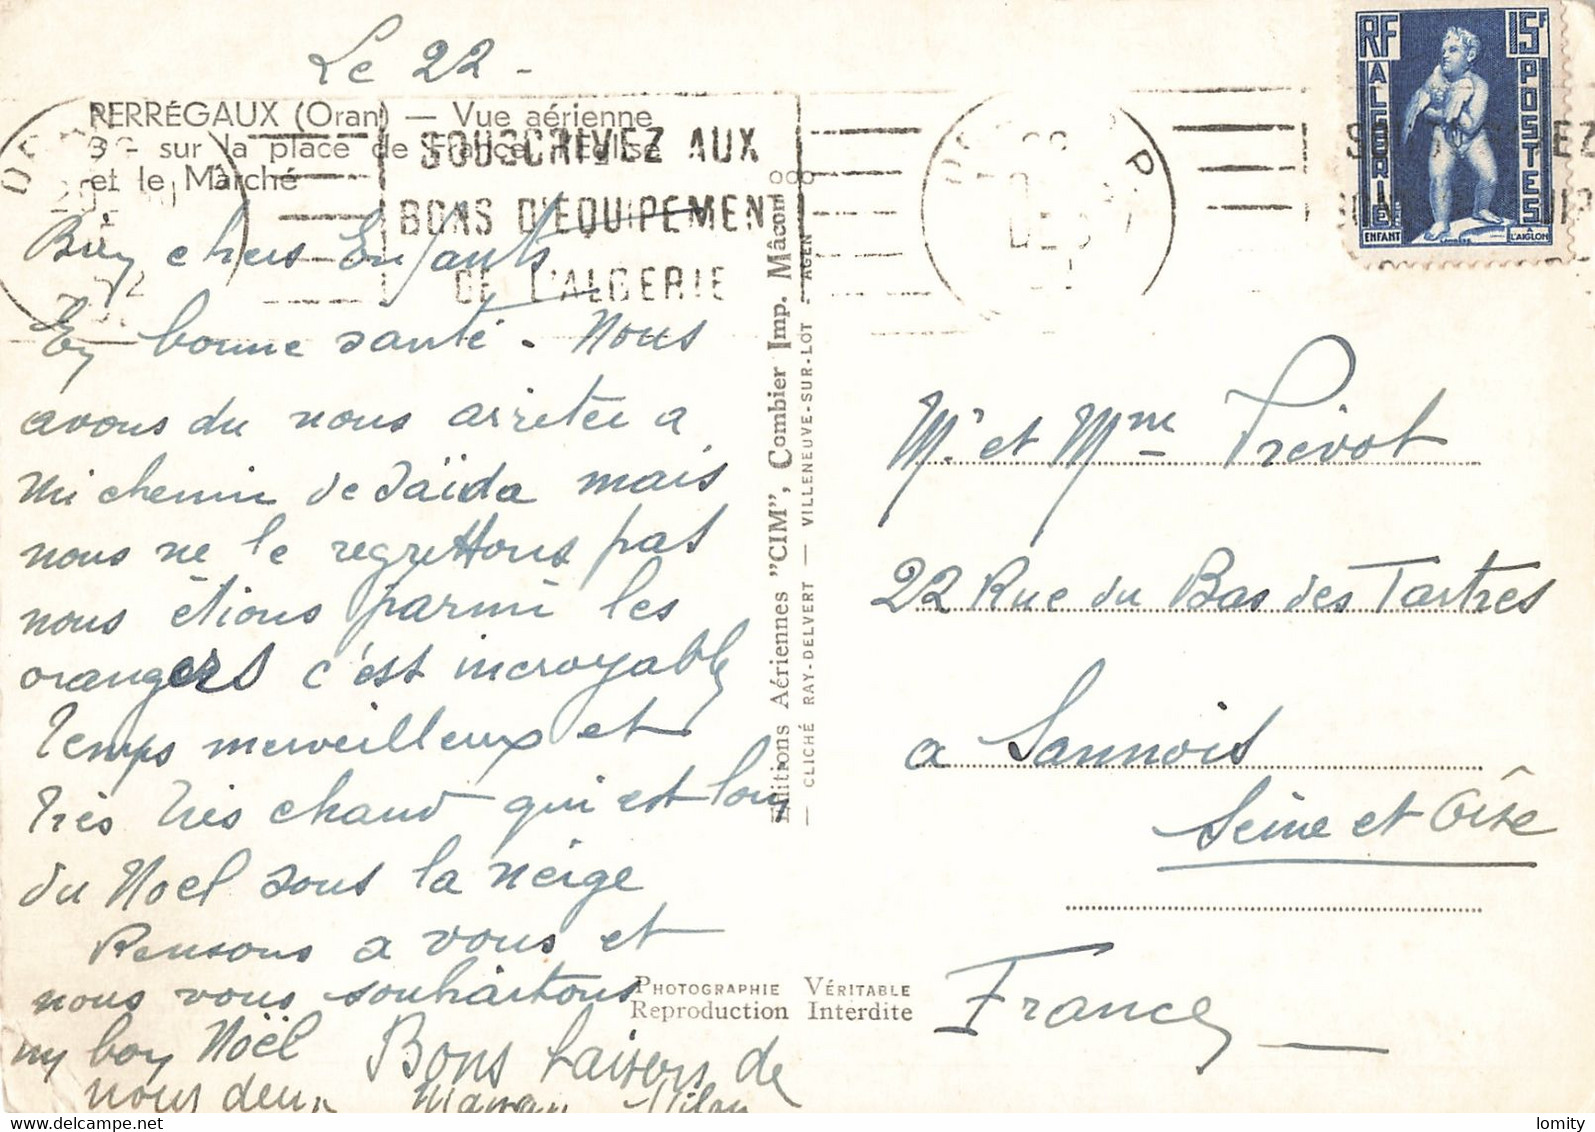 Le 22 -
PERRÉGAUX (Oran) — Vue aérienne
sur la place de France, l'Eglise
et le Marché
SOUSCRIVEZ AUX
BONS D'ÉQUIPEMENT
DE L'ALGERIE
RF
15F
ALGERIE
POSTES
ENFANT
A L'AIGLON
Bien chers Enfants
En bonne santé. Nous
avons du nous arreter a
mi chemin de Saïda mais
nous ne le regrettons pas
nous étions parmi les
orangers c'est incroyable
Temps merveilleux et
très très chaud qui est loin
du Noel sous la neige
Pensons a vous et
nous vous souhaitons
un bon Noël Bons baisers de
nous deux Maman
Editions Aériennes "CIM", Combier Imp. Mâcon
— CLICHÉ RAY-DELVERT — VILLENEUVE-SUR-LOT - AGEN
Mr et Mme Prévot
22 Rue du Bas des Tartres
a Sannois
Seine et Oise
France
PHOTOGRAPHIE VÉRITABLE
Reproduction Interdite
lomity